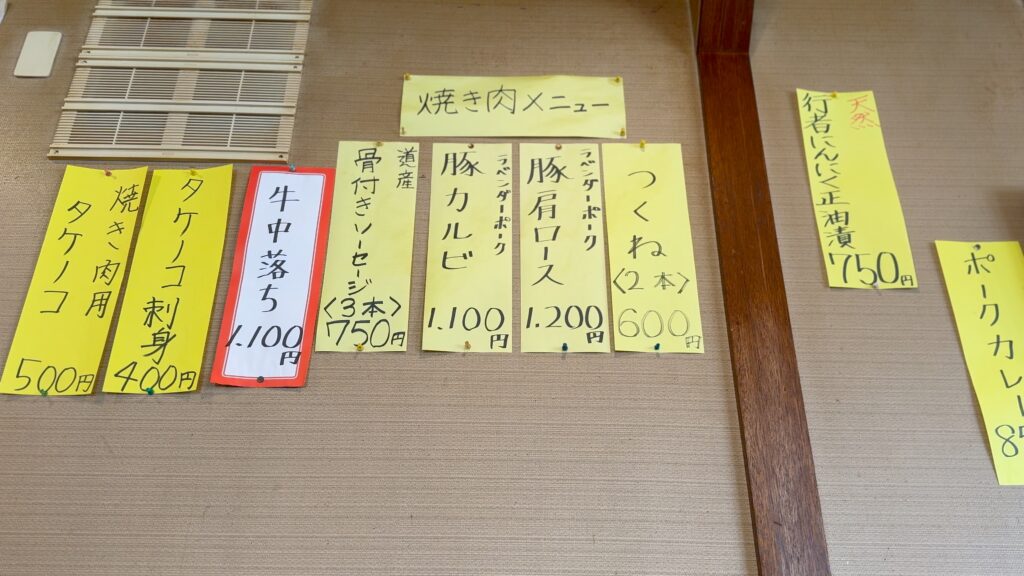 焼き肉メニュー
つくね
〈2本〉
600円
ラベンダーポーク
豚肩ロース
1.200円
ラベンダーポーク
豚カルビ
1.100円
道産
骨付きソーセージ
〈3本〉
750円
牛中落ち
1.100円
タケノコ刺身
400円
焼き肉用
タケノコ
500円
天然
行者にんにく正油漬
750円
ポークカレー